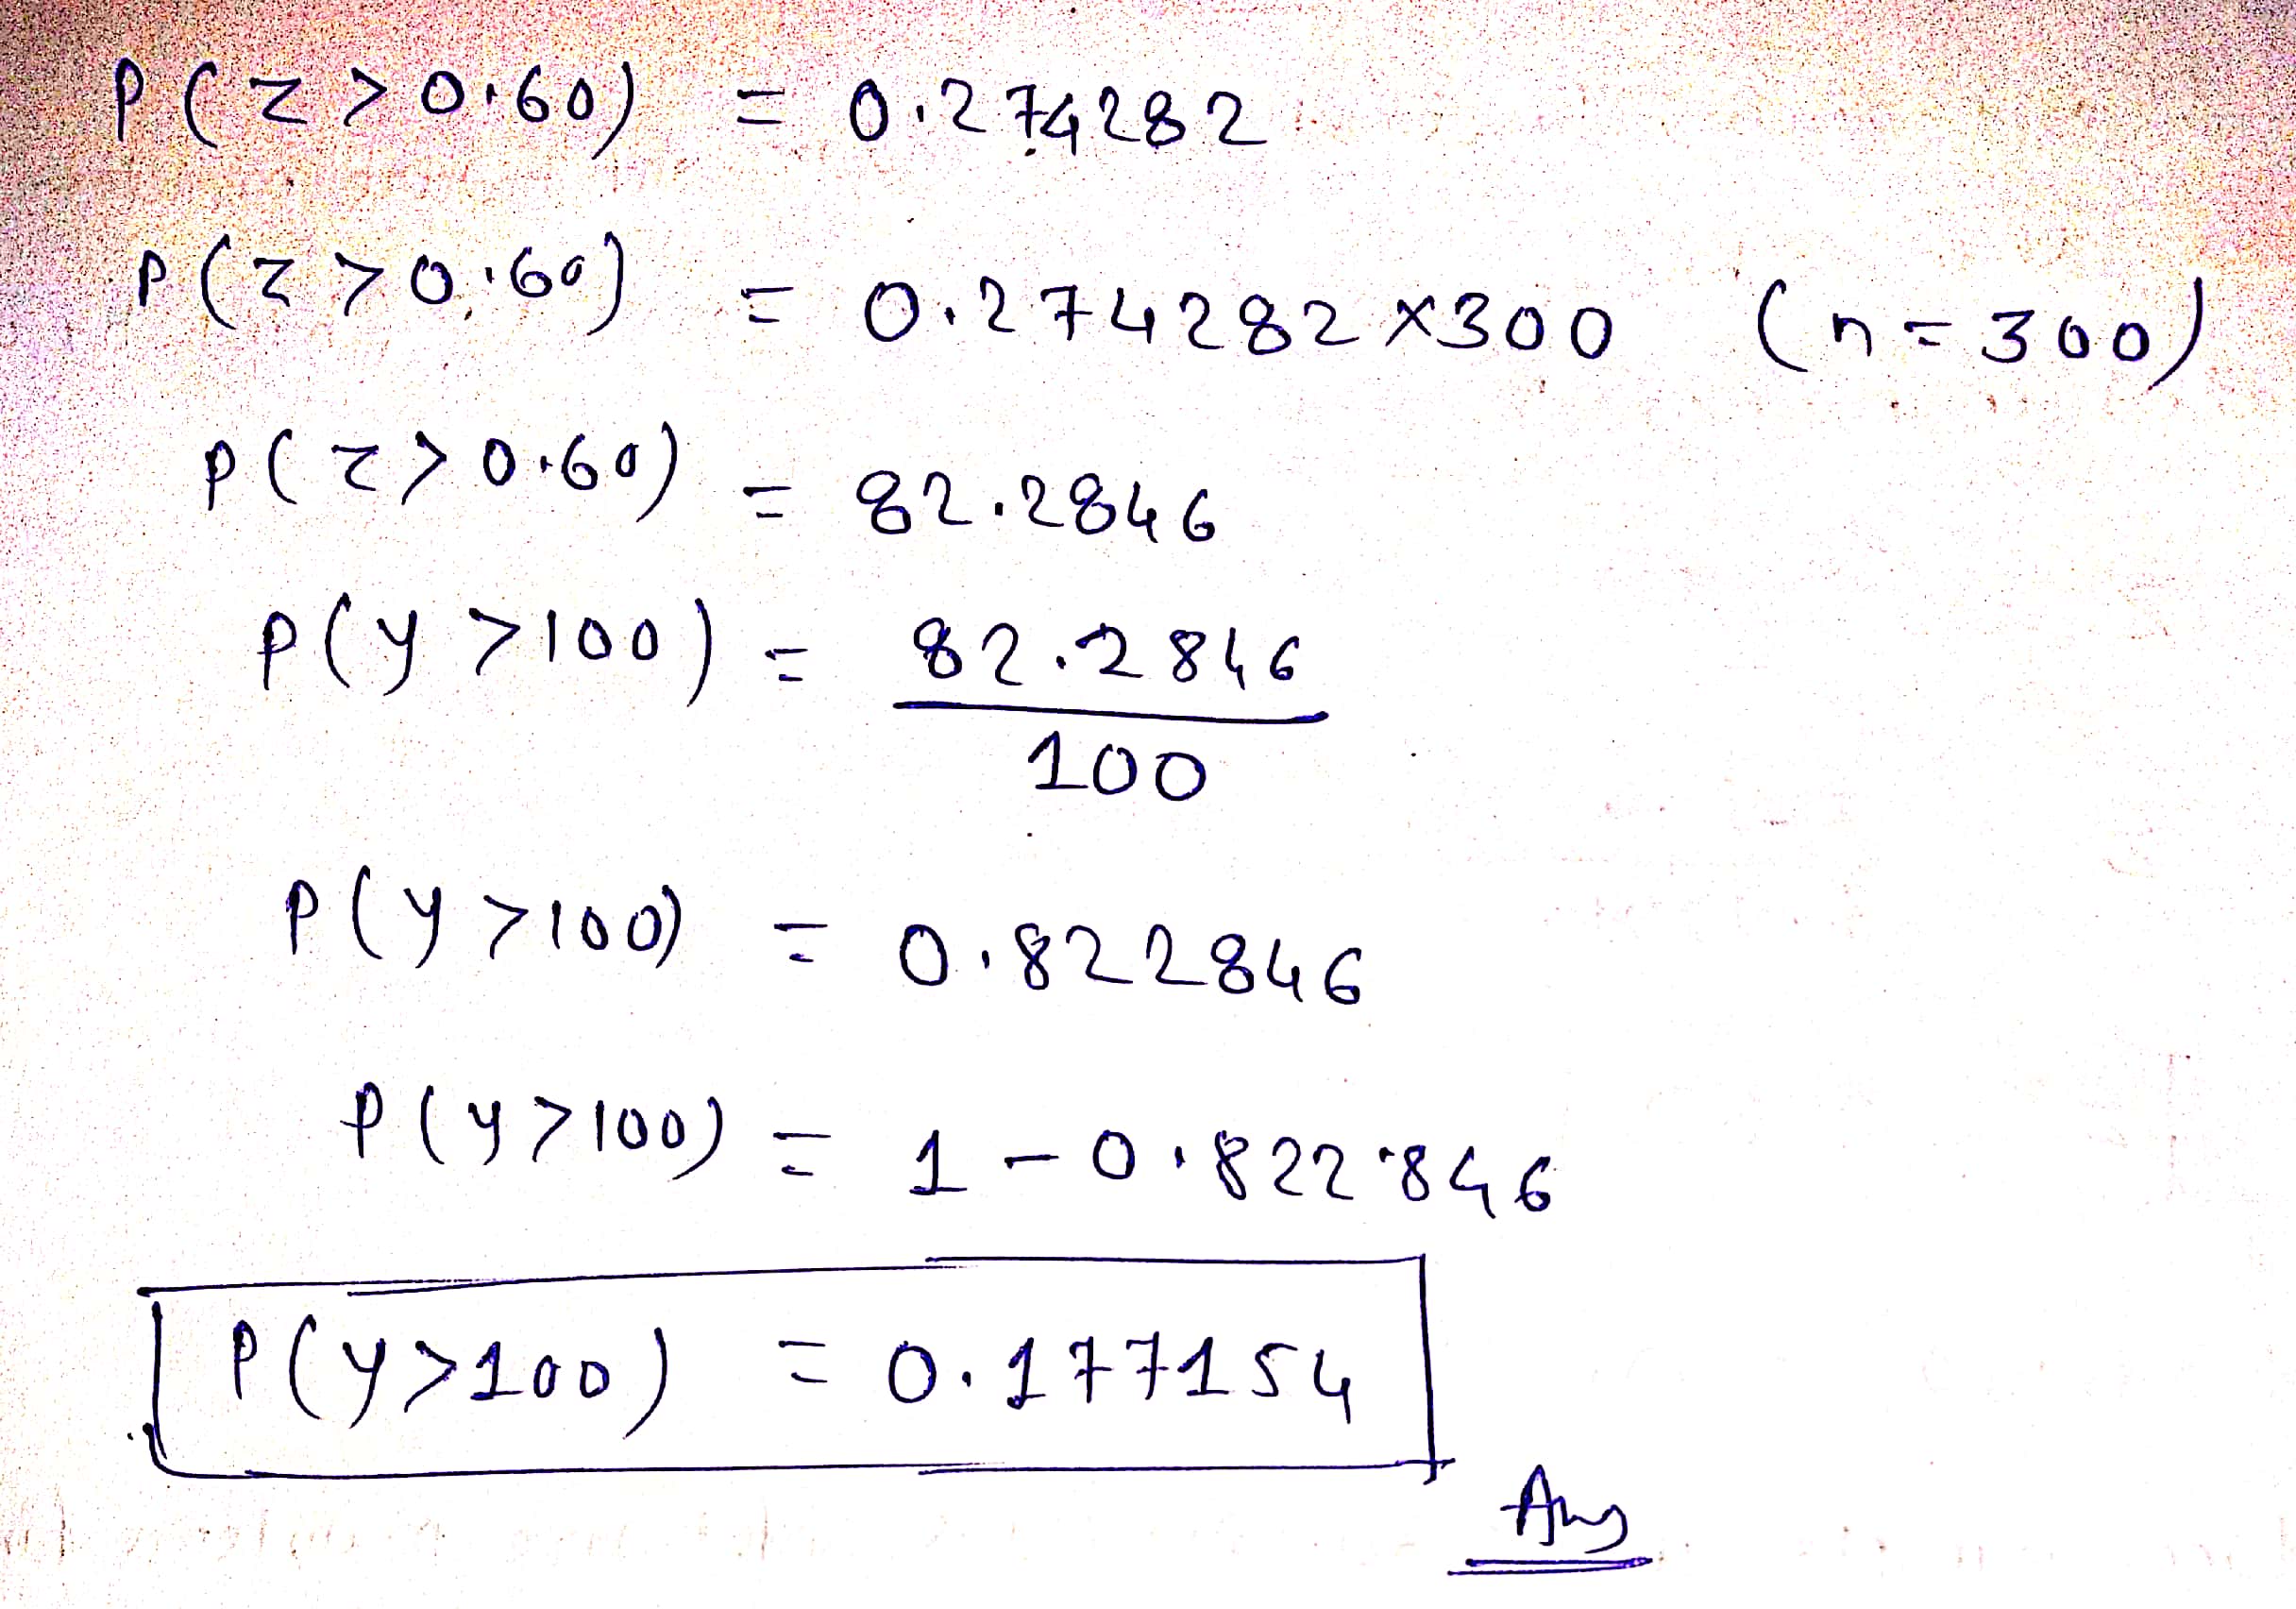 P(z>0.60) = 0.274282
P(z>0.60) = 0.274282 x300 (n=300)
P(z>0.60) = 82.2846
P(y>100) = 82.2846
100
P(y>100) = 0.822846
P(y>100) = 1-0.822846
P(y>100) = 0.177154
Ans